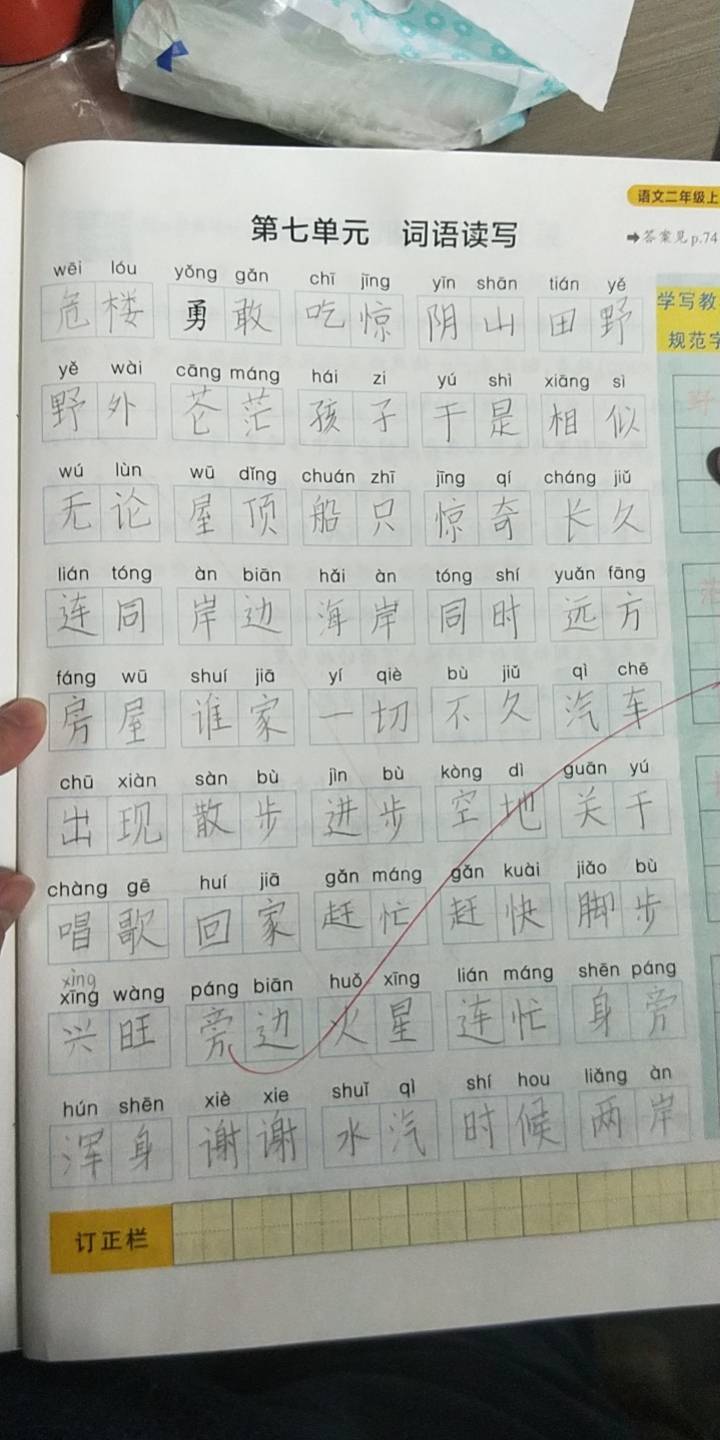 语文二年级上
第七单元 词语读写
➡答案见p.74
wēi lóu yǒng gǎn chī jīng yīn shān tián yě
危楼 勇敢 吃惊 阴山 田野
学写教
规范字
yě wài cāng máng hái zi yú shì xiāng sì
野外 苍茫 孩子 于是 相似
wú lùn wū dǐng chuán zhī jīng qí cháng jiǔ
无论 屋顶 船只 惊奇 长久
lián tóng àn biān hǎi àn tóng shí yuǎn fāng
连同 岸边 海岸 同时 远方
fáng wū shuí jiā yí qiè bù jiǔ qì chē
房屋 谁家 一切 不久 汽车
chū xiàn sàn bù jìn bù kòng dì guān yú
出现 散步 进步 空地 关于
chàng gē huí jiā gǎn máng gǎn kuài jiǎo bù
唱歌 回家 赶忙 赶快 脚步
xìng
xīng wàng páng biān huǒ xīng lián máng shēn páng
兴旺 旁边 火星 连忙 身旁
hún shēn xiè xie shuǐ qì shí hou liǎng àn
浑身 谢谢 水汽 时候 两岸
订正栏